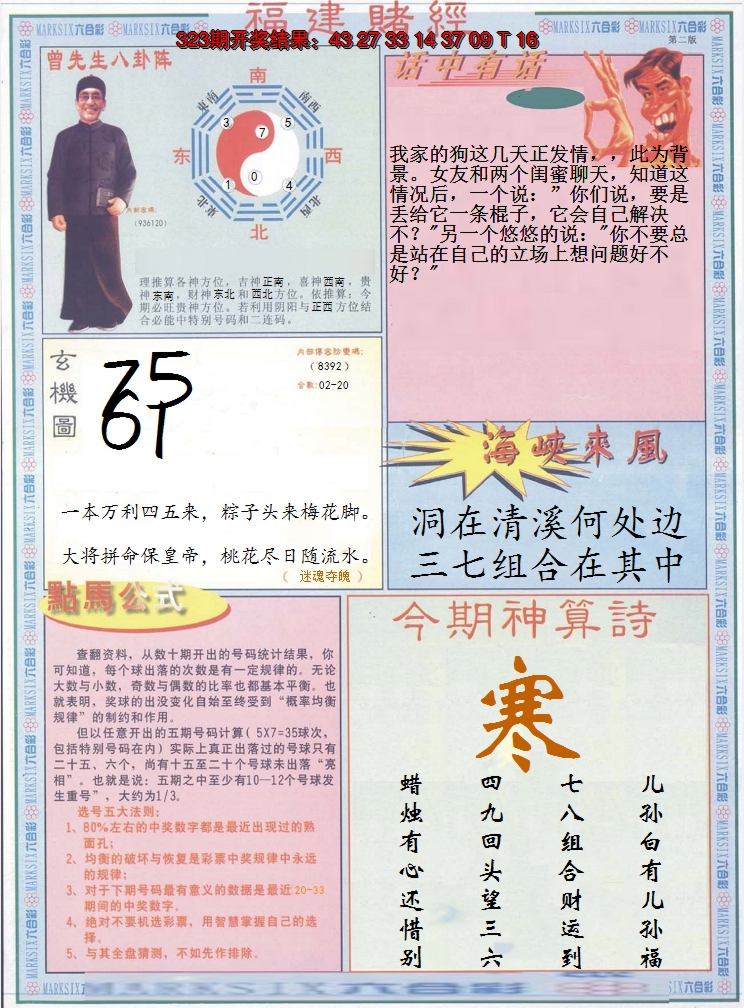 福建賭經
323期开奖结果：43 27 33 14 37 09 T 16
第二版
MARKSIX六合彩
曾先生八卦阵
南
东南
西南
3
5
7
东
西
1
0
4
東北
西北
北
內部密碼：
(936120)
理推算各神方位，吉神正南，喜神西南，贵
神东南，财神东北和西北方位。依推算：今
期必旺贵神方位。若利用阴阳与正西方位结
合必能中特别号码和二连码。
话中有话
我家的狗这几天正发情，，此为背
景。女友和两个闺蜜聊天，知道这
情况后，一个说：”你们说，要是
丢给它一条棍子，它会自己解决
不？"另一个悠悠的说："你不要总
是站在自己的立场上想问题好不
好？"
玄機圖
75
61
(8392)
合數:02-20
一本万利四五来，粽子头来梅花脚。
大将拼命保皇帝，桃花尽日随流水。
（ 迷魂夺魄 ）
海峽來風
洞在清溪何处边
三七组合在其中
點馬公式
查翻资料，从数十期开出的号码统计结果，你
可知道，每个球出落的次数是有一定规律的。无论
大数与小数，奇数与偶数的比率也都基本平衡。也
就表明，奖球的出没变化自始至终受到“概率均衡
规律”的制约和作用。
但以任意开出的五期号码计算( 5X7=35球次，
包括特别号码在内) 实际上真正出落过的号球只有
二十五、六个，尚有十五至二十个号球未出落“亮
相”。也就是说：五期之中至少有10—12个号球发
生重号”，大约为1/3。
选号五大法则：
1、80%左右的中奖数字都是最近出现过的熟
面孔；
2、均衡的破坏与恢复是彩票中奖规律中永远
的规律；
3、对于下期号码最有意义的数据是最近20-33
期间的中奖数字。
4、绝对不要机选彩票，用智慧掌握自己的选
择。
5、与其全盘猜测，不如先作排除。
今期神算詩
寒
儿孙白有儿孙福
七八组合财运到
四九回头望三六
蜡烛有心还惜别